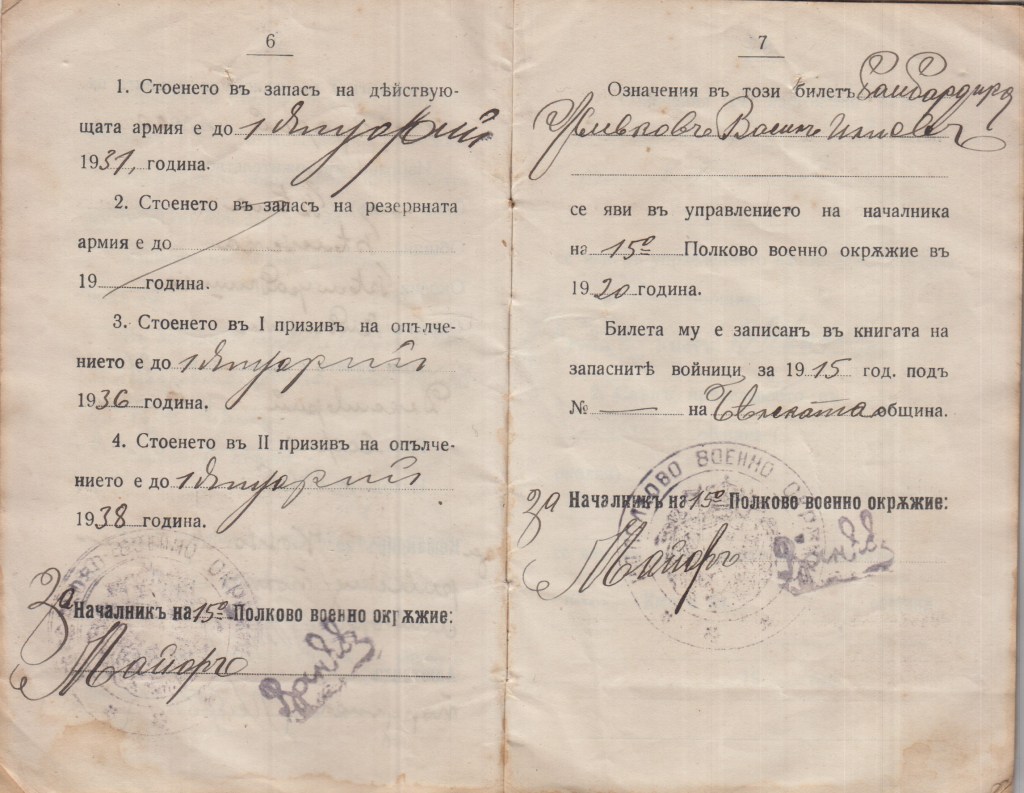 6
1. Стоенето въ запасъ на дѣйствую-
щата армия е до 1 Януарий
1931, година.
2. Стоенето въ запасъ на резервната
армия е до
19 година.
3. Стоенето въ I призивъ на опълче-
нието е до 1 Януарий
1936 година.
4. Стоенето въ II призивъ на опълче-
нието е до 1 Януарий
1938 година.
За Началникъ на 15º Полково военно окрѫжие:
Майоръ
7
Означения въ този билетъ
се яви въ управлението на началника
на 15º Полково военно окрѫжие въ
1920 година.
Билета му е записанъ въ книгата на
запаснитѣ войници за 1915 год. подъ
№ — на община.
ПОЛКОВО ВОЕННО
За Началникъ на 15º Полково военно окрѫжие:
Майоръ